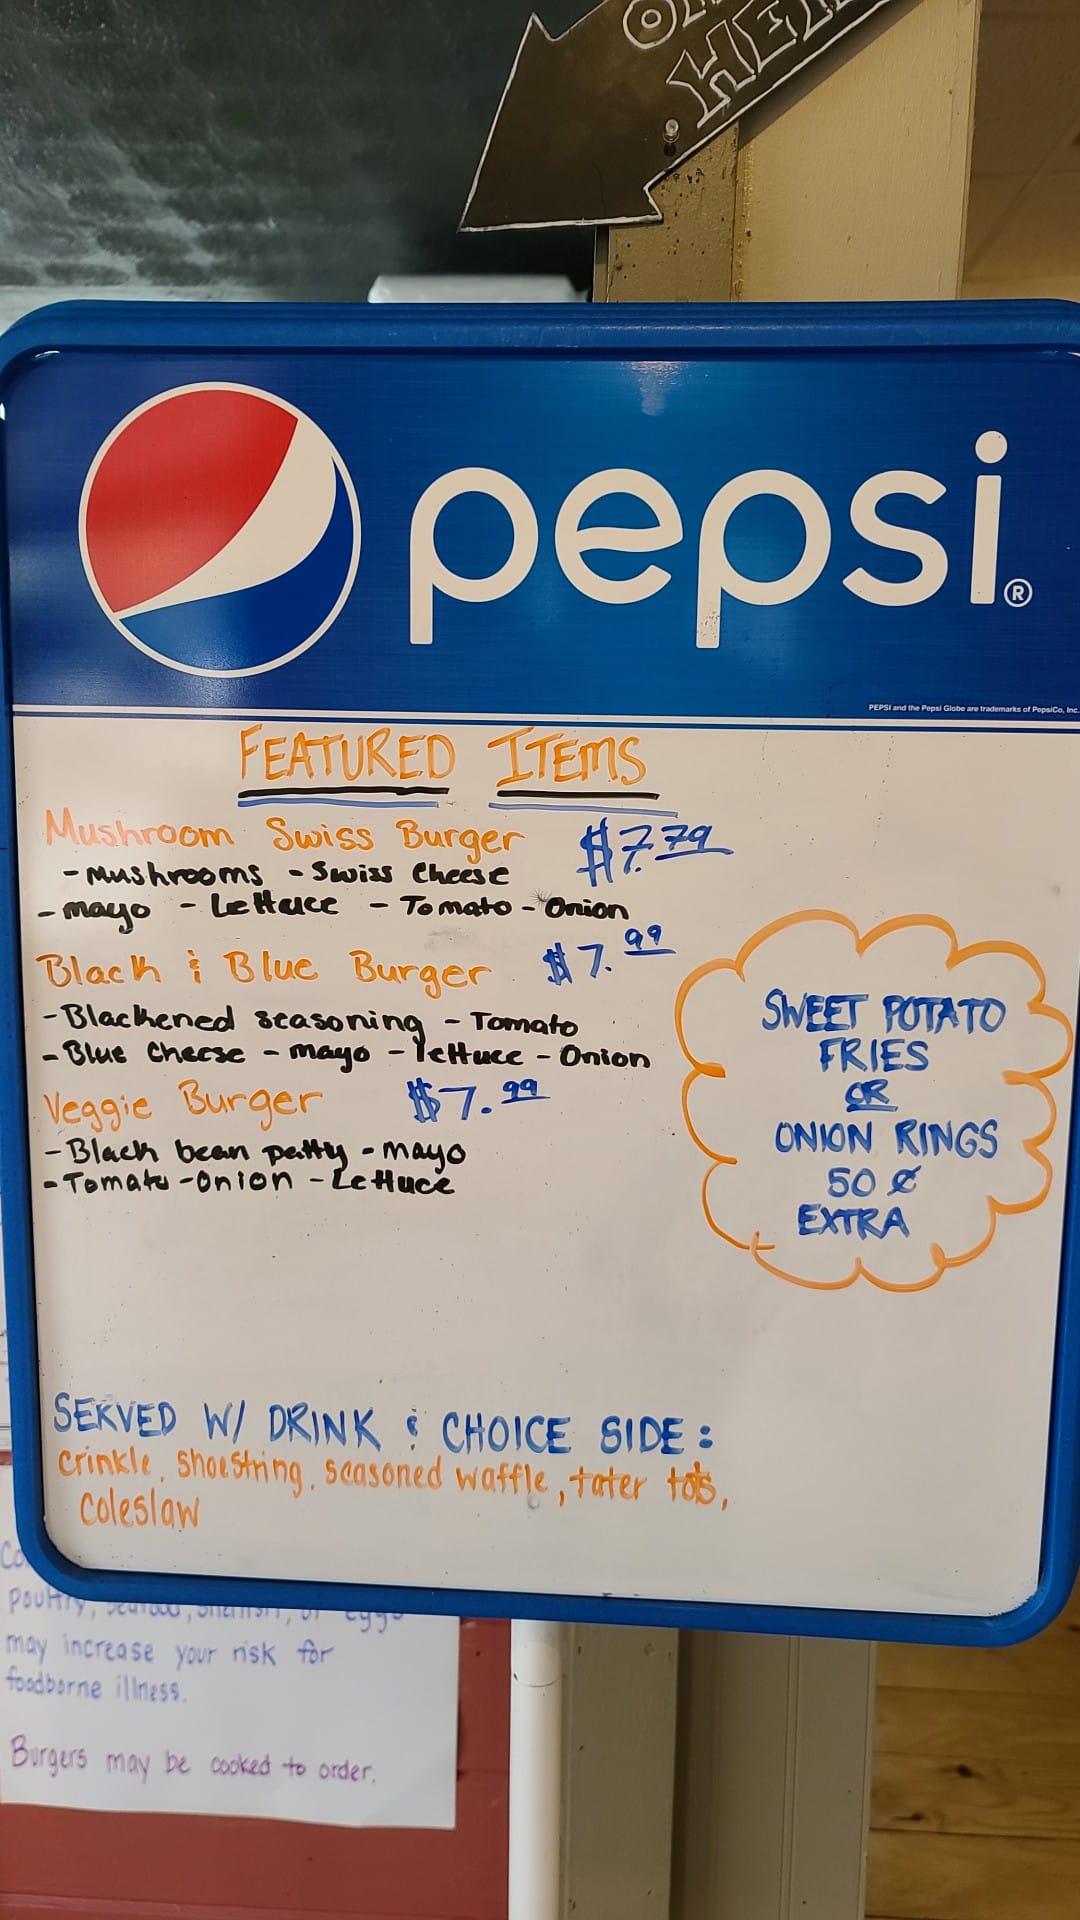 HE
pepsi®
PEPSI and the Pepsi Globe are trademarks of PepsiCo, Inc.
FEATURED ITEMS
Mushroom Swiss Burger $7.79
- Mushrooms - Swiss Cheese
- mayo - Lettuce - Tomato - Onion
Black & Blue Burger $7.99
- Blackened seasoning - Tomato
- Blue Cheese - mayo - lettuce - Onion
Veggie Burger $7.99
- Black bean patty - mayo
- Tomato - Onion - Lettuce
SWEET POTATO
FRIES
OR
ONION RINGS
50 ¢
EXTRA
SERVED W/ DRINK & CHOICE SIDE:
crinkle, shoestring, seasoned waffle, tater tots,
coleslaw
poultry, seafood, shellfish, or eggs
may increase your risk for
foodborne illness.
Burgers may be cooked to order.